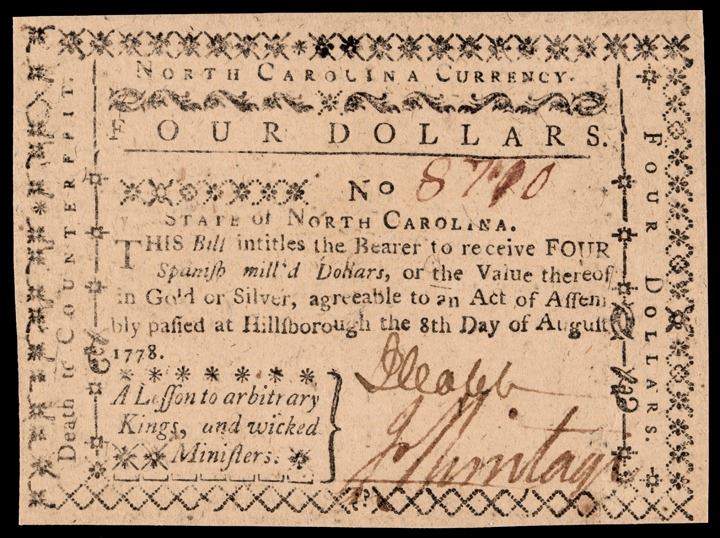 NORTH CAROLINA CURRENCY.
FOUR DOLLARS.
No 8790
STATE of NORTH CAROLINA.
THIS Bill intitles the Bearer to receive FOUR
Spaniſh mill'd Dollars, or the Value thereof
in Gold or Silver, agreeable to an Act of Aſſem
bly paſſed at Hillſborough the 8th Day of Auguſt
1778.
A Leſſon to arbitrary
Kings, and wicked
Miniſters.
Death to COUNTERFEIT.
FOUR DOLLARS.